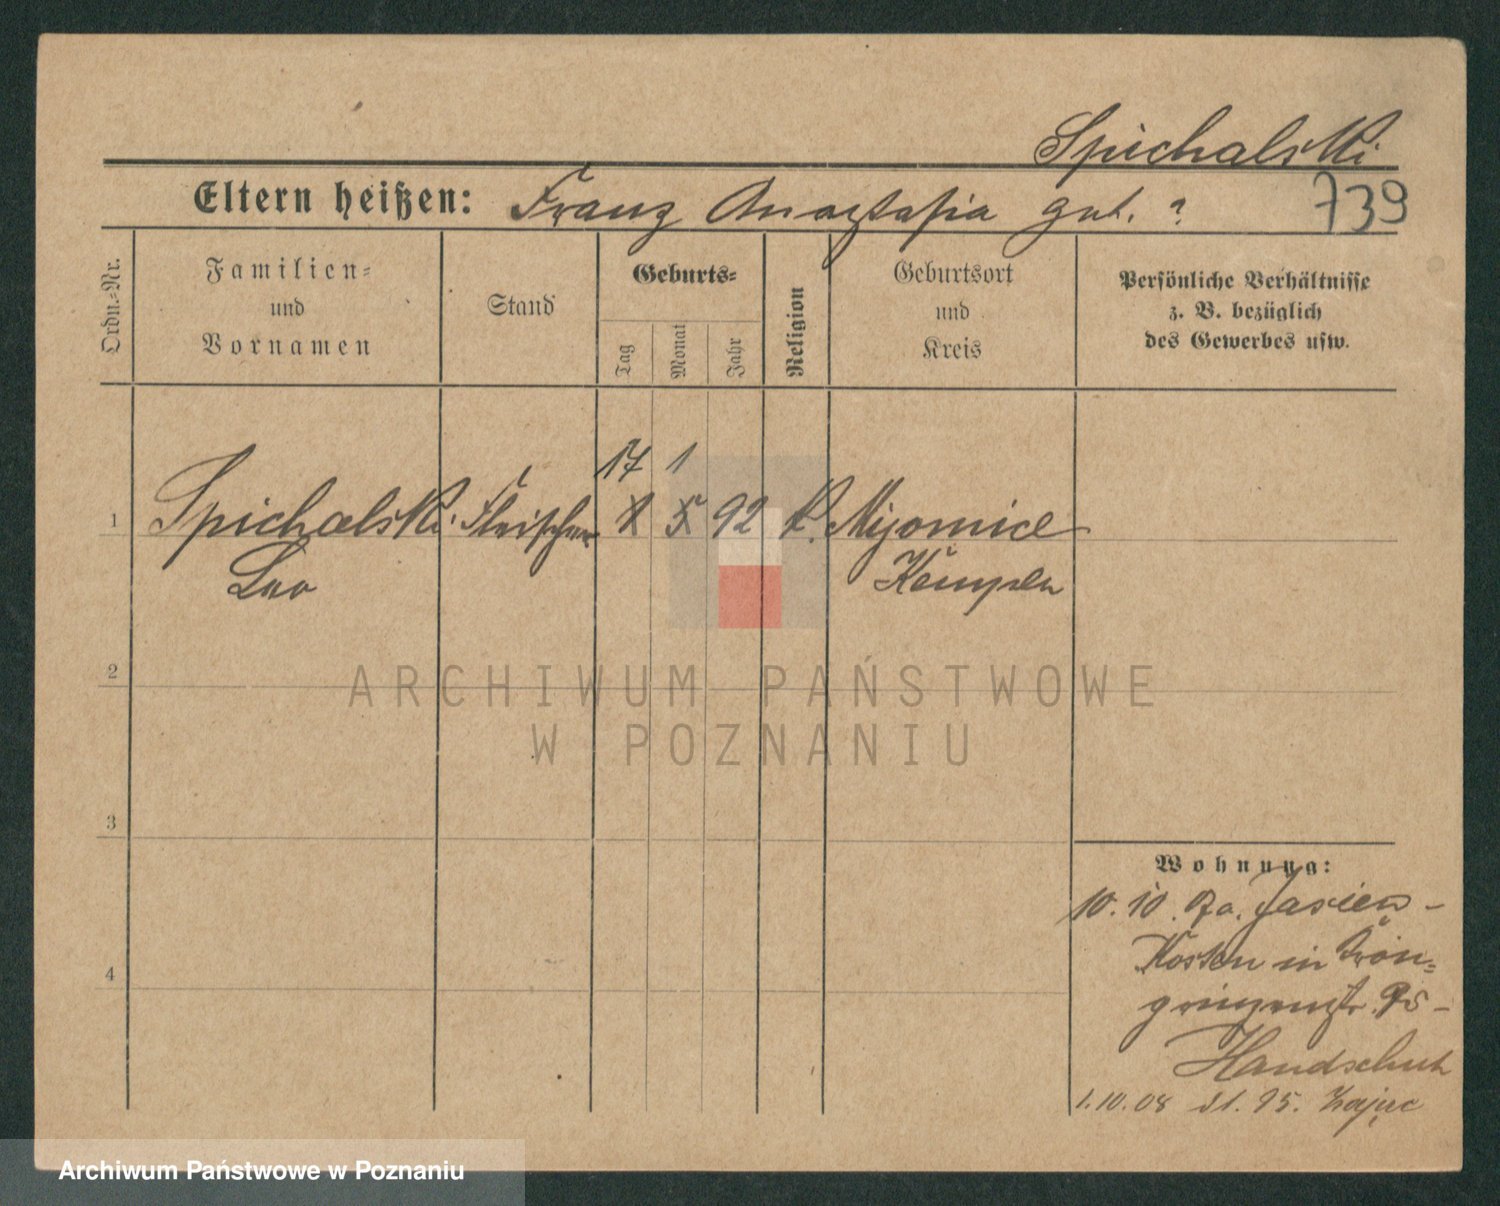 Spichalski
Eltern heißen: Franz Anastasia geb. ?
739
Ordn.-Nr.
Familien-
und
Vornamen
Stand
Geburts-
Tag
Monat
Jahr
Religion
Geburtsort
und
Kreis
Persönliche Verhältnisse
z. B. bezüglich
des Gewerbes usw.
17 1
1 Spichalski Fleischer 1 5 92 k. Mijomice
Leo Kempen
2
3
4
Wohnung:
10.10. Jasien-
Kosten in Kron-
prinzenstr. 95-
Handschuh
1.10.08 St. 95. Zając
ARCHIWUM PAŃSTWOWE
W POZNANIU
Archiwum Państwowe w Poznaniu